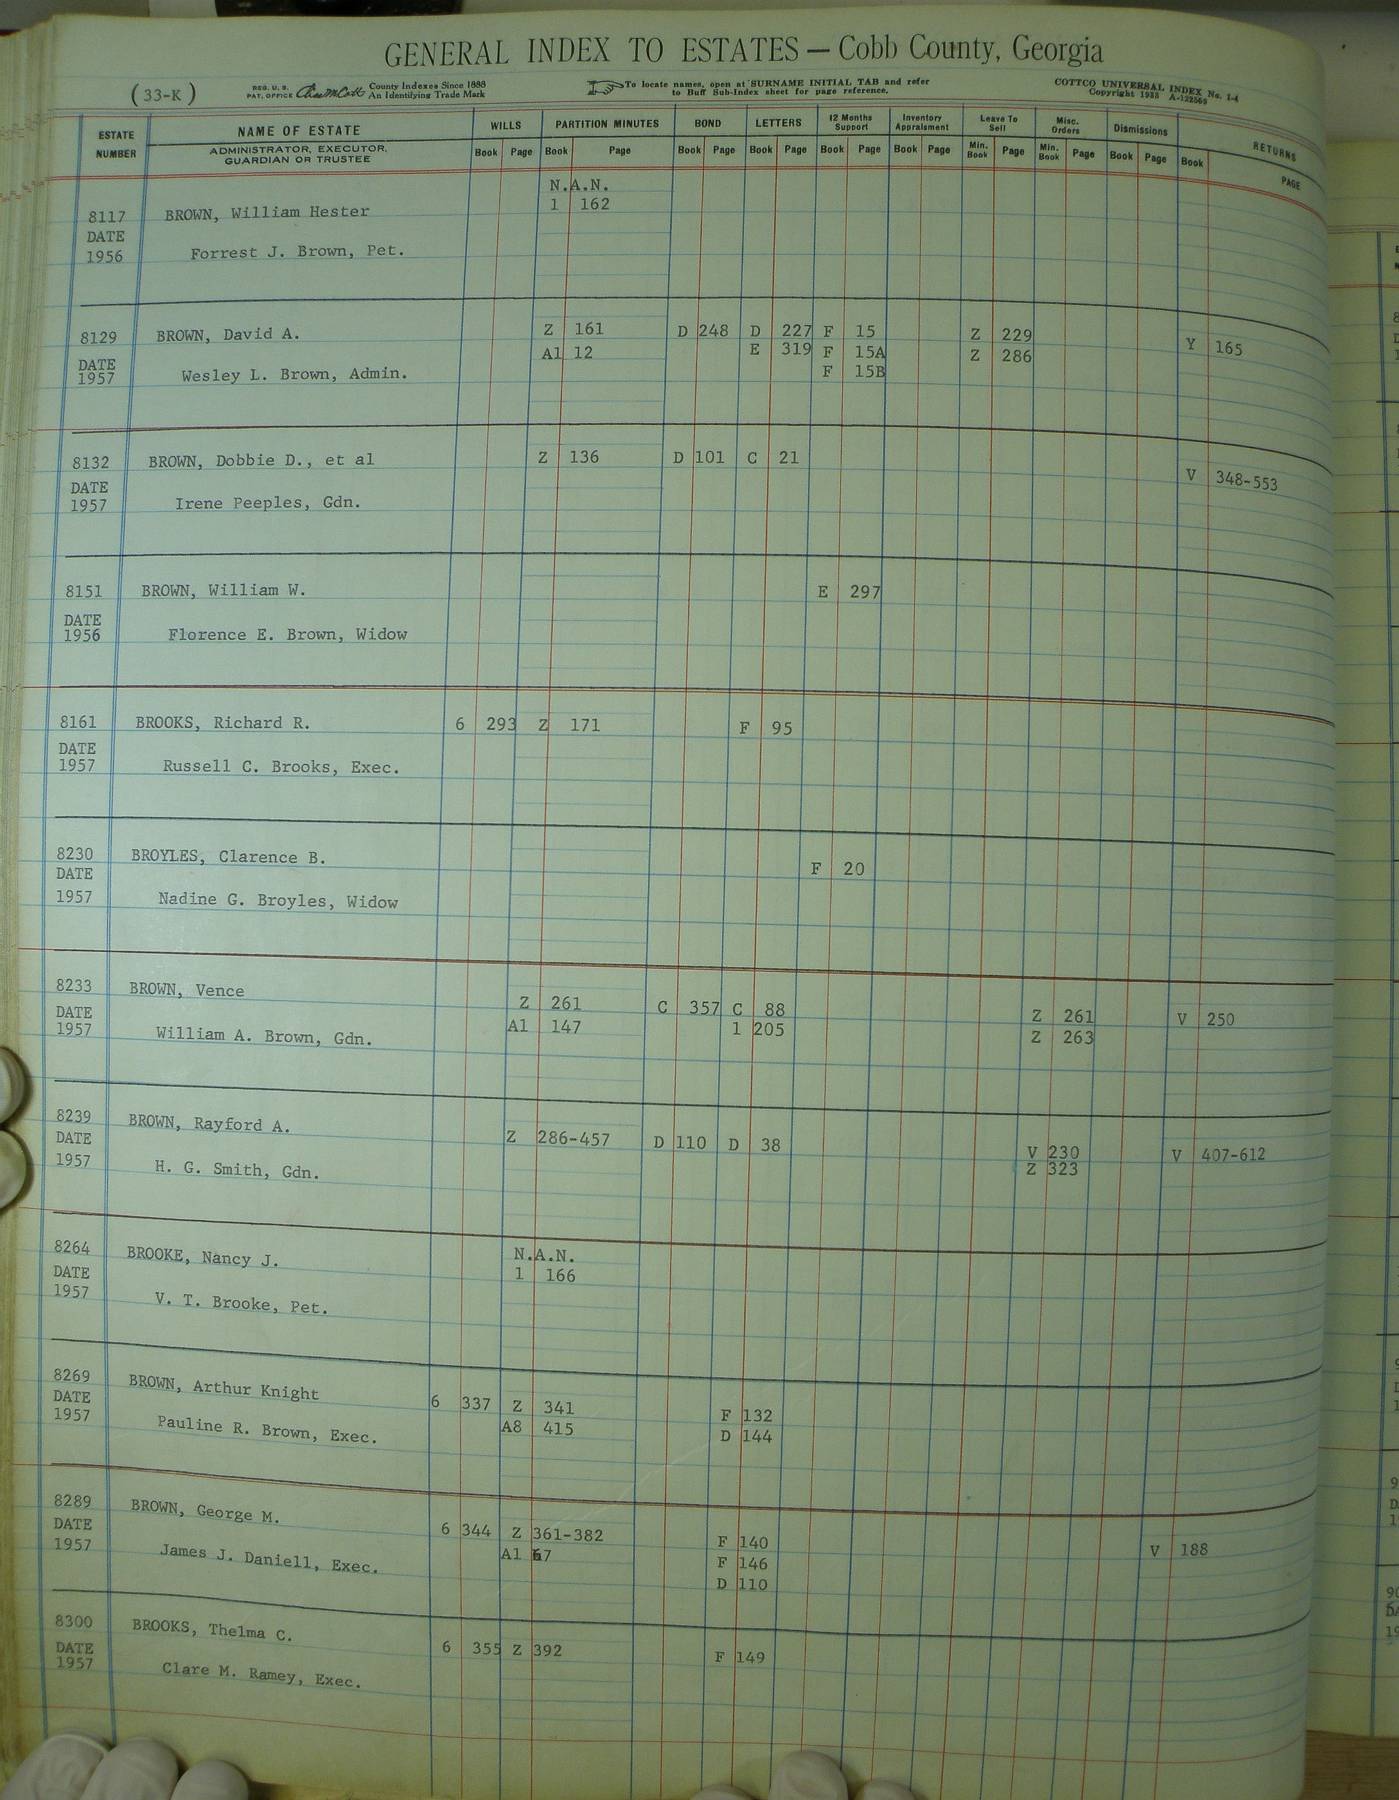 GENERAL INDEX TO ESTATES — Cobb County, Georgia
(33-K) REG. U. S. PAT. OFFICE County Indexes Since 1888 An Identifying Trade Mark
To locate names, open at SURNAME INITIAL TAB and refer
to Buff Sub-Index sheet for page reference.
COTTCO UNIVERSAL INDEX No. 1-4
Copyright 1953 A-122569
ESTATE NUMBER NAME OF ESTATE WILLS PARTITION MINUTES BOND LETTERS 12 Months Support Inventory Appraisment Leave To Sell Misc. Orders Dismissions RETURNS
ADMINISTRATOR, EXECUTOR, GUARDIAN OR TRUSTEE Book Page Book Page Book Page Book Page Book Page Book Page Min. Book Page Min. Book Page Book Page Book PAGE
N.A.N.
8117 BROWN, William Hester 1 162
DATE
1956 Forrest J. Brown, Pet.
8129 BROWN, David A. Z 161 D 248 D 227 F 15 Z 229 Y 165
DATE A1 12 E 319 F 15A Z 286
1957 Wesley L. Brown, Admin. F 15B
8132 BROWN, Dobbie D., et al Z 136 D 101 C 21 V 348-553
DATE
1957 Irene Peeples, Gdn.
8151 BROWN, William W. E 297
DATE
1956 Florence E. Brown, Widow
8161 BROOKS, Richard R. 6 293 Z 171 F 95
DATE
1957 Russell C. Brooks, Exec.
8230 BROYLES, Clarence B. F 20
DATE
1957 Nadine G. Broyles, Widow
8233 BROWN, Vence Z 261 C 357 C 88 Z 261 V 250
DATE A1 147 1 205 Z 263
1957 William A. Brown, Gdn.
8239 BROWN, Rayford A. Z 286-457 D 110 D 38 V 230 V 407-612
DATE Z 323
1957 H. G. Smith, Gdn.
8264 BROOKE, Nancy J. N.A.N.
DATE 1 166
1957 V. T. Brooke, Pet.
8269 BROWN, Arthur Knight 6 337 Z 341 F 132
DATE A8 415 D 144
1957 Pauline R. Brown, Exec.
8289 BROWN, George M. 6 344 Z 361-382 F 140 V 188
DATE A1 67 F 146
1957 James J. Daniell, Exec. D 110
8300 BROOKS, Thelma C. 6 355 Z 392 F 149
DATE
1957 Clare M. Ramey, Exec.